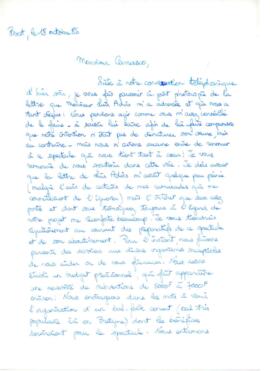 Brest, le 18 octobre 80
Monsieur Camasco,
Suite à notre conversation téléphonique
d'hier soir, je vous fais parvenir ci-joint photocopie de la
lettre que Monsieur Luis Achis m'a adressée et qui nous a
tant déçus. Nous pensions agir comme vous m'aviez conseillé
de le faire - à savoir lui écrire afin de lui faire comprendre
que notre intention n'était pas de son œuvre, bien
au contraire - mais nous n'avions aucune envie de renoncer
à ce spectacle qui nous tient tant à cœur. Je vous
remercie de nous soutenir dans cette voie. Je dois avouer
que la lettre de Luis Achis m'avait quelque peu peinée
(malgré l'avis de certains de mes camarades qui me
conseillaient de l'ignorer) mais l'intérêt que vous lui
portez et dont vous témoignez, toujours à l'égard de
notre projet me réconforte beaucoup. Je vous tiendrai
régulièrement au courant des préparatifs de ce spectacle
et de son aboutissement. Pour l'instant nous faisons
parvenir des dossiers aux divers organismes susceptibles
de nous aider ou de nous financer. Nous avons
établi un budget prévisionnel qui fait apparaître
une nécessité de subventions de
environ. Nous envisageons dans les mois à venir
l'organisation d'un bal folk (très
populaire ici en Bretagne) dont les bénéfices
serviraient pour le spectacle. Nous